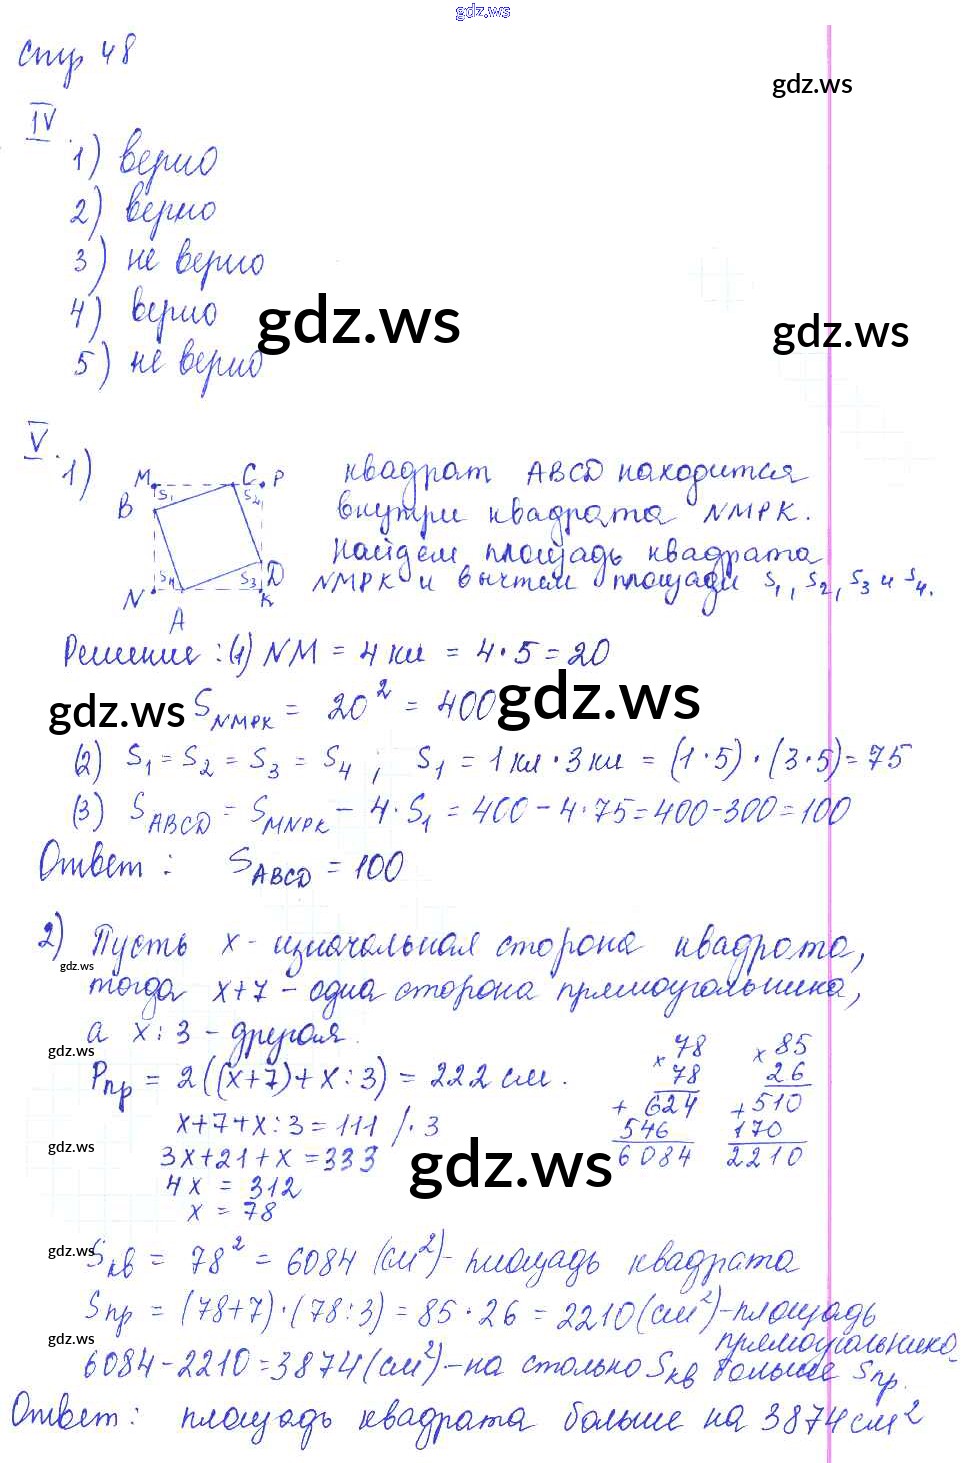 gdz.ws
стр 48
gdz.ws
IV.
1) верно
2) верно
3) не верно
4) верно
gdz.ws
gdz.ws
5) не верно
V. 1)
M C P
S1 S2
B
S4 S3 D
N K
A
квадрат ABCD находится
внутри квадрата NMPK.
Найдём площадь квадрата
NMPK и вычтем площади S1, S2, S3 и S4.
Решение: (1) NM = 4 кл = 4·5=20
gdz.ws S_NMPK = 20² = 400 gdz.ws
(2) S1 = S2 = S3 = S4 ; S1 = 1 кл · 3 кл = (1·5)·(3·5)=75
(3) S_ABCD = S_MNPK − 4·S1 = 400 − 4·75=400−300=100
Ответ: S_ABCD = 100
2) Пусть x - изначальная сторона квадрата,
gdz.ws
тогда x+7 − одна сторона прямоугольника,
а x:3 − другая.
gdz.ws
Pпр = 2((x+7)+x:3) = 222 см.
x+7+x:3=111 /·3
3x+21+x=333
4x = 312
x = 78
× 78
78
+ 624
546
6084
× 85
26
+ 510
170
2210
gdz.ws
gdz.ws
gdz.ws
Sкв = 78² = 6084 (см²) - площадь квадрата
Sпр = (78+7)·(78:3) = 85·26 = 2210(см²)−площадь
gdz.ws
прямоугольника.
6084−2210=3874(см²)−на столько Sкв больше Sпр.
Ответ: площадь квадрата больше на 3874 см²